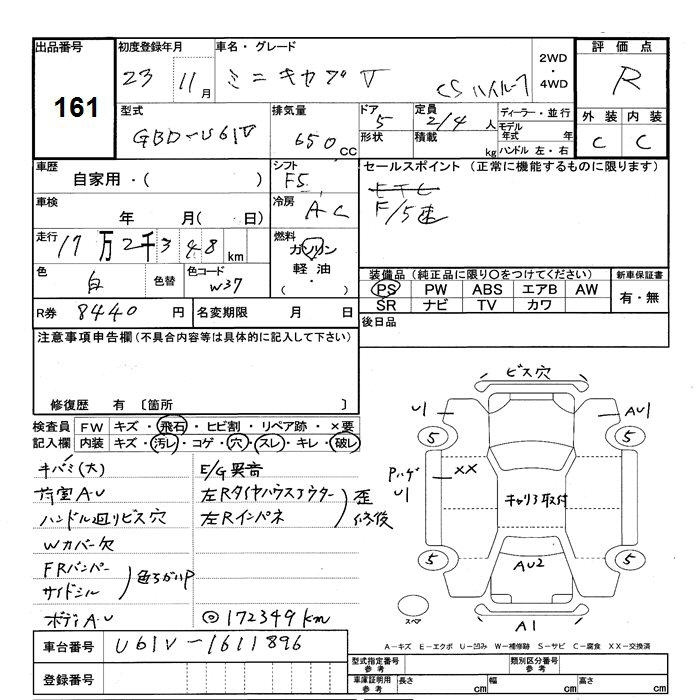 出品番号 初度登録年月 車名・グレード 2WD ・ 4WD 評価点
161
23 11月 ミニキャブV CSハイルーフ R
型式 排気量 ドア 定員 ディーラー・並行 外装 内装
GBD-U61V 650cc 5 2/4人 モデル年式 年 C C
形状 積載 kg ハンドル 左・右
車歴 シフト セールスポイント (正常に機能するものに限ります)
自家用・( ) F5
F/5速
車検 冷房
年 月(日) AC
走行 燃料
17万2千348km ガソリン
軽油
( ・ )
色 色替 色コード
白 W37
装備品(純正品に限り○をつけてください) 新車保証書
PS PW ABS エアB AW 有・無
SR ナビ TV カワ
R券 8440円 名変期限 月 日 後日品
注意事項申告欄(不具合内容等は具体的に記入して下さい)
修復歴 有 〔箇所 〕
検査員 FW キズ・飛石・ヒビ割・リペア跡・×要
記入欄 内装 キズ・汚レ・コゲ・穴・スレ・キレ・破レ
キバミ(大) E/G異音
荷室AU 左Rタイヤハウスアウター
ハンドル廻リビス穴 左Rインパネ
歪修後
Wカバー欠
FRバンパー
サイドシル
色ちがいP
ボディAU ◎172349km
ビス穴
U1 AU1
5 5
Pハゲ
U1
XX
キャリア取付
5 5
AU2
スペア
A1
車台番号 U61V-1611896
登録番号
A−キズ E−エクボ U−凹み W−補修跡 S−サビ C−腐食 XX−交換済
型式指定番号 参考 類別区分番号 参考
車庫証明用 参考 長さ cm 幅 cm 高さ cm